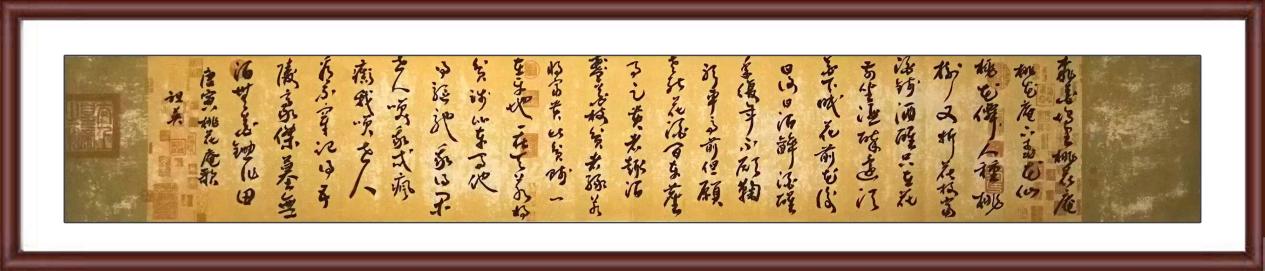 桃花塢里桃花庵
桃花庵下桃花仙
桃花僊人種桃
樹又折花枝當
酒錢酒醒只在花
前坐酒醉还須
花下眠花前花後
日復日酒醉酒醒
年復年不願鞠
躬車馬前但願
老死花酒間車塵
馬足貴者趣酒
盞花枝貧者緣若
將富貴比貧賤一
在平地一在天若將
貧賤比車馬他
得驅馳我得閑
世人笑我忒瘋
癲我笑世人
看不穿記得五
陵豪傑墓無
酒無花鋤作田
唐寅桃花庵歌
祖英